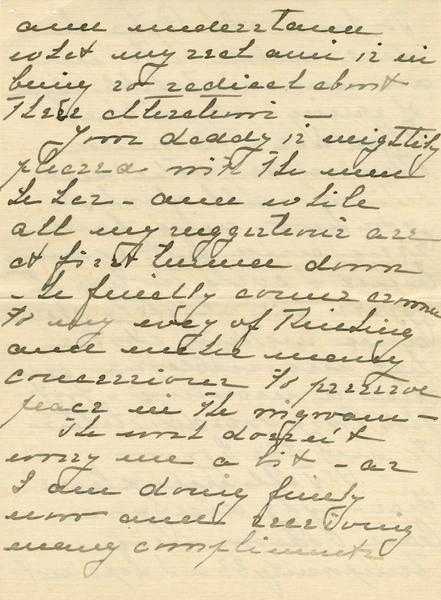 and understand
what my real aim is in
being so radical about
these alterations —
Your daddy is mightily
pleased with the new
– and while
all my suggestions are
at first turned down
– he finally comes around
to my way of thinking
and makes many
concessions to preserve
peace in the wigwam –
The work doesn't
worry me a bit – as
I am doing finely
now and receiving
many compliments